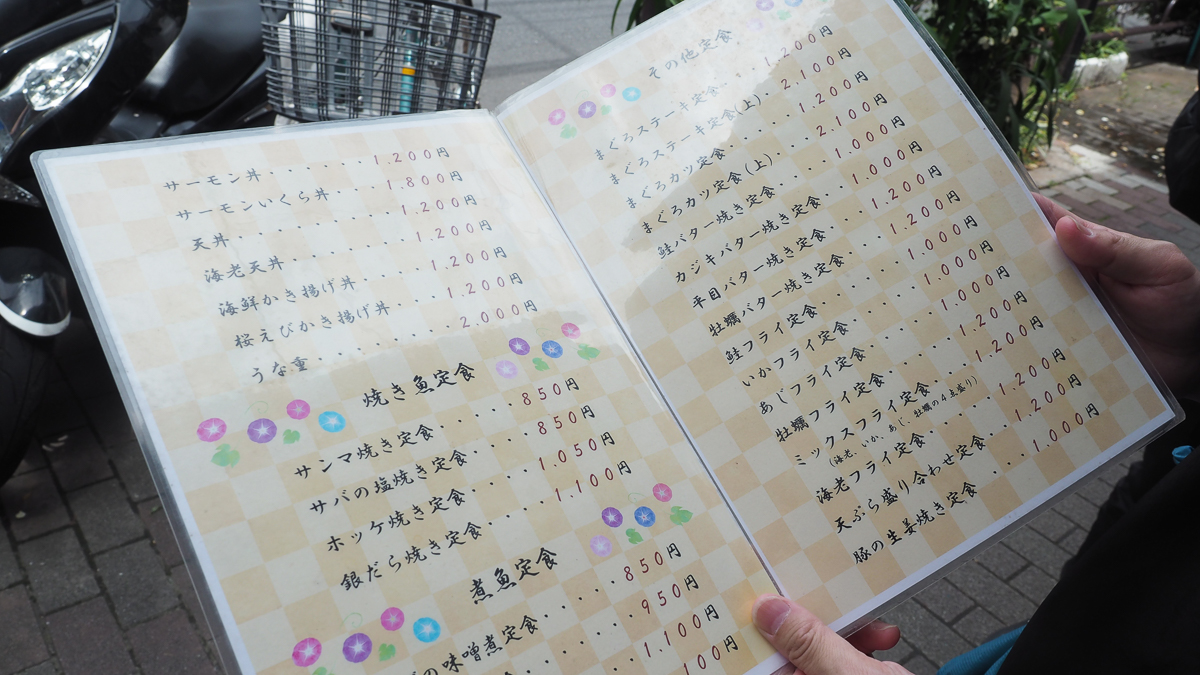 サーモン丼・・・・・1.200円
サーモンいくら丼・・・1.800円
天丼・・・・・・・・1.200円
海老天丼・・・・・・1.200円
海鮮かき揚げ丼・・・・1.200円
桜えびかき揚げ丼・・・1.200円
うな重・・・・・・・2.000円
焼き魚定食
サンマ焼き定食・・・・850円
サバの塩焼き定食・・・850円
ホッケ焼き定食・・・・1.050円
銀だら焼き定食・・・・1.100円
煮魚定食
の味噌煮定食・・・・850円
950円
1.100円
100円
その他定食
まぐろステーキ定食・・・1.200円
まぐろステーキ定食(上)・2.100円
まぐろカツ定食・・・・1.200円
まぐろカツ定食(上)・・・2.100円
鮭バター焼き定食・・・1.000円
カジキバター焼き定食・・1.000円
平目バター焼き定食・・・1.200円
牡蠣バター焼き定食・・・1.200円
鮭フライ定食・・・・・1.000円
いかフライ定食・・・・1.000円
あじフライ定食・・・・1.000円
牡蠣フライ定食・・・・1.200円
ミックスフライ定食・・・1.200円
(海老、いか、あじ、牡蠣の4点盛り)
海老フライ定食・・・・1.200円
天ぷら盛り合わせ定食・・1.200円
豚の生姜焼き定食・・・1.000円